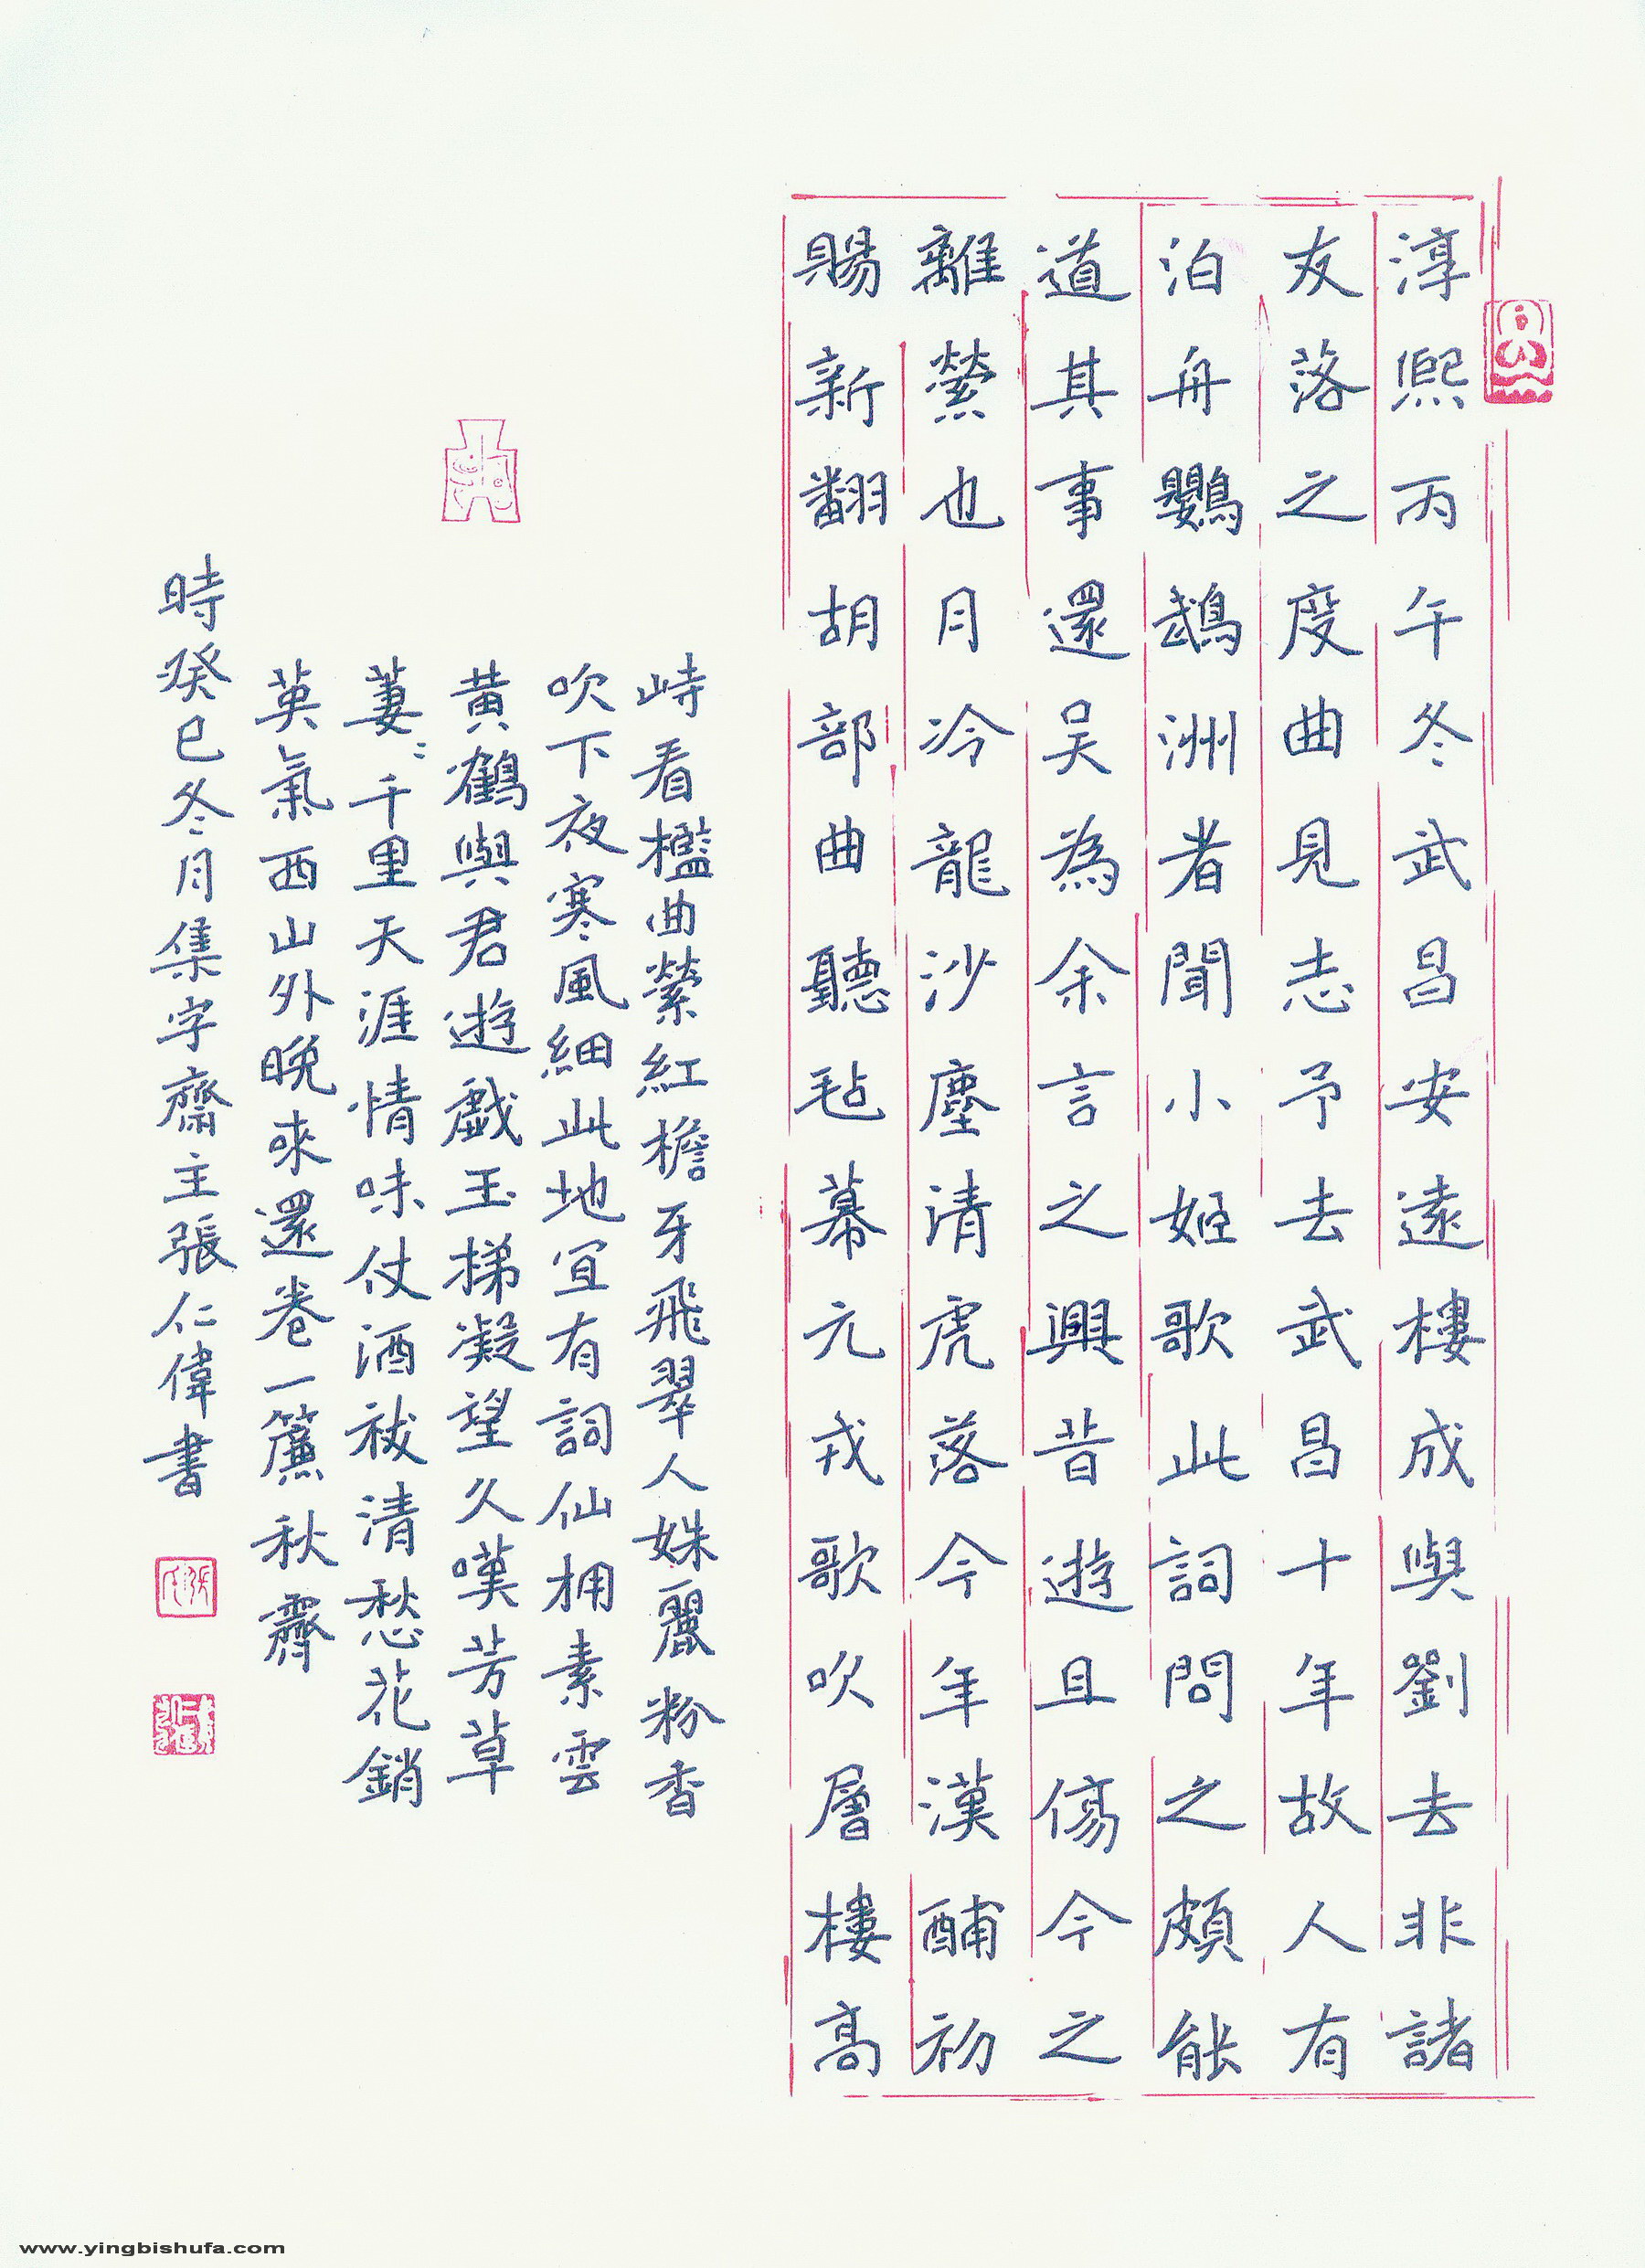 淳熙丙午冬武昌安遠樓成與劉去非諸
友落之度曲見志予去武昌十年故人有
泊舟鸚鵡洲者聞小姬歌此詞問之頗能
道其事還吳為余言之興昔遊且傷今之
離縈也月冷龍沙塵清虎落今年漢酺初
賜新翻胡部曲聽毡幕元戎歌吹層樓高
峙看檻曲縈紅檐牙飛翠人姝麗粉香
吹下夜寒風細此地宜有詞仙拥素雲
黄鶴與君遊戲玉梯凝望久嘆芳草
萋〻千里天涯情味仗酒祓清愁花銷
英氣西山外晚来還卷一簾秋霽
時癸巳冬月集字齋主張仁偉書
www.yingbishufa.com